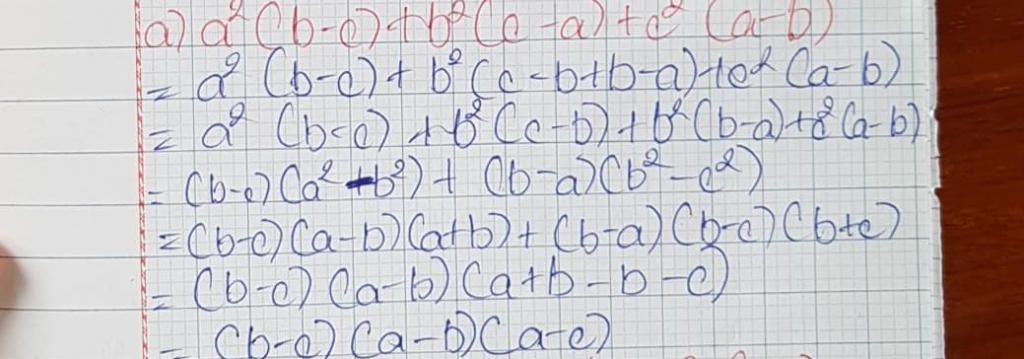 a) a² (b-c) + b² (c-a) + c² (a-b)
= a² (b-c) + b² (c-b+b-a) + c² (a-b)
= a² (b-c) + b² (c-b) + b² (b-a) + c² (a-b)
= (b-c) (a² - b²) + (b-a) (b² - c²)
= (b-c) (a-b) (a+b) + (b-a) (b-c) (b+c)
= (b-c) (a-b) (a+b-b-c)
= (b-c) (a-b) (a-c)